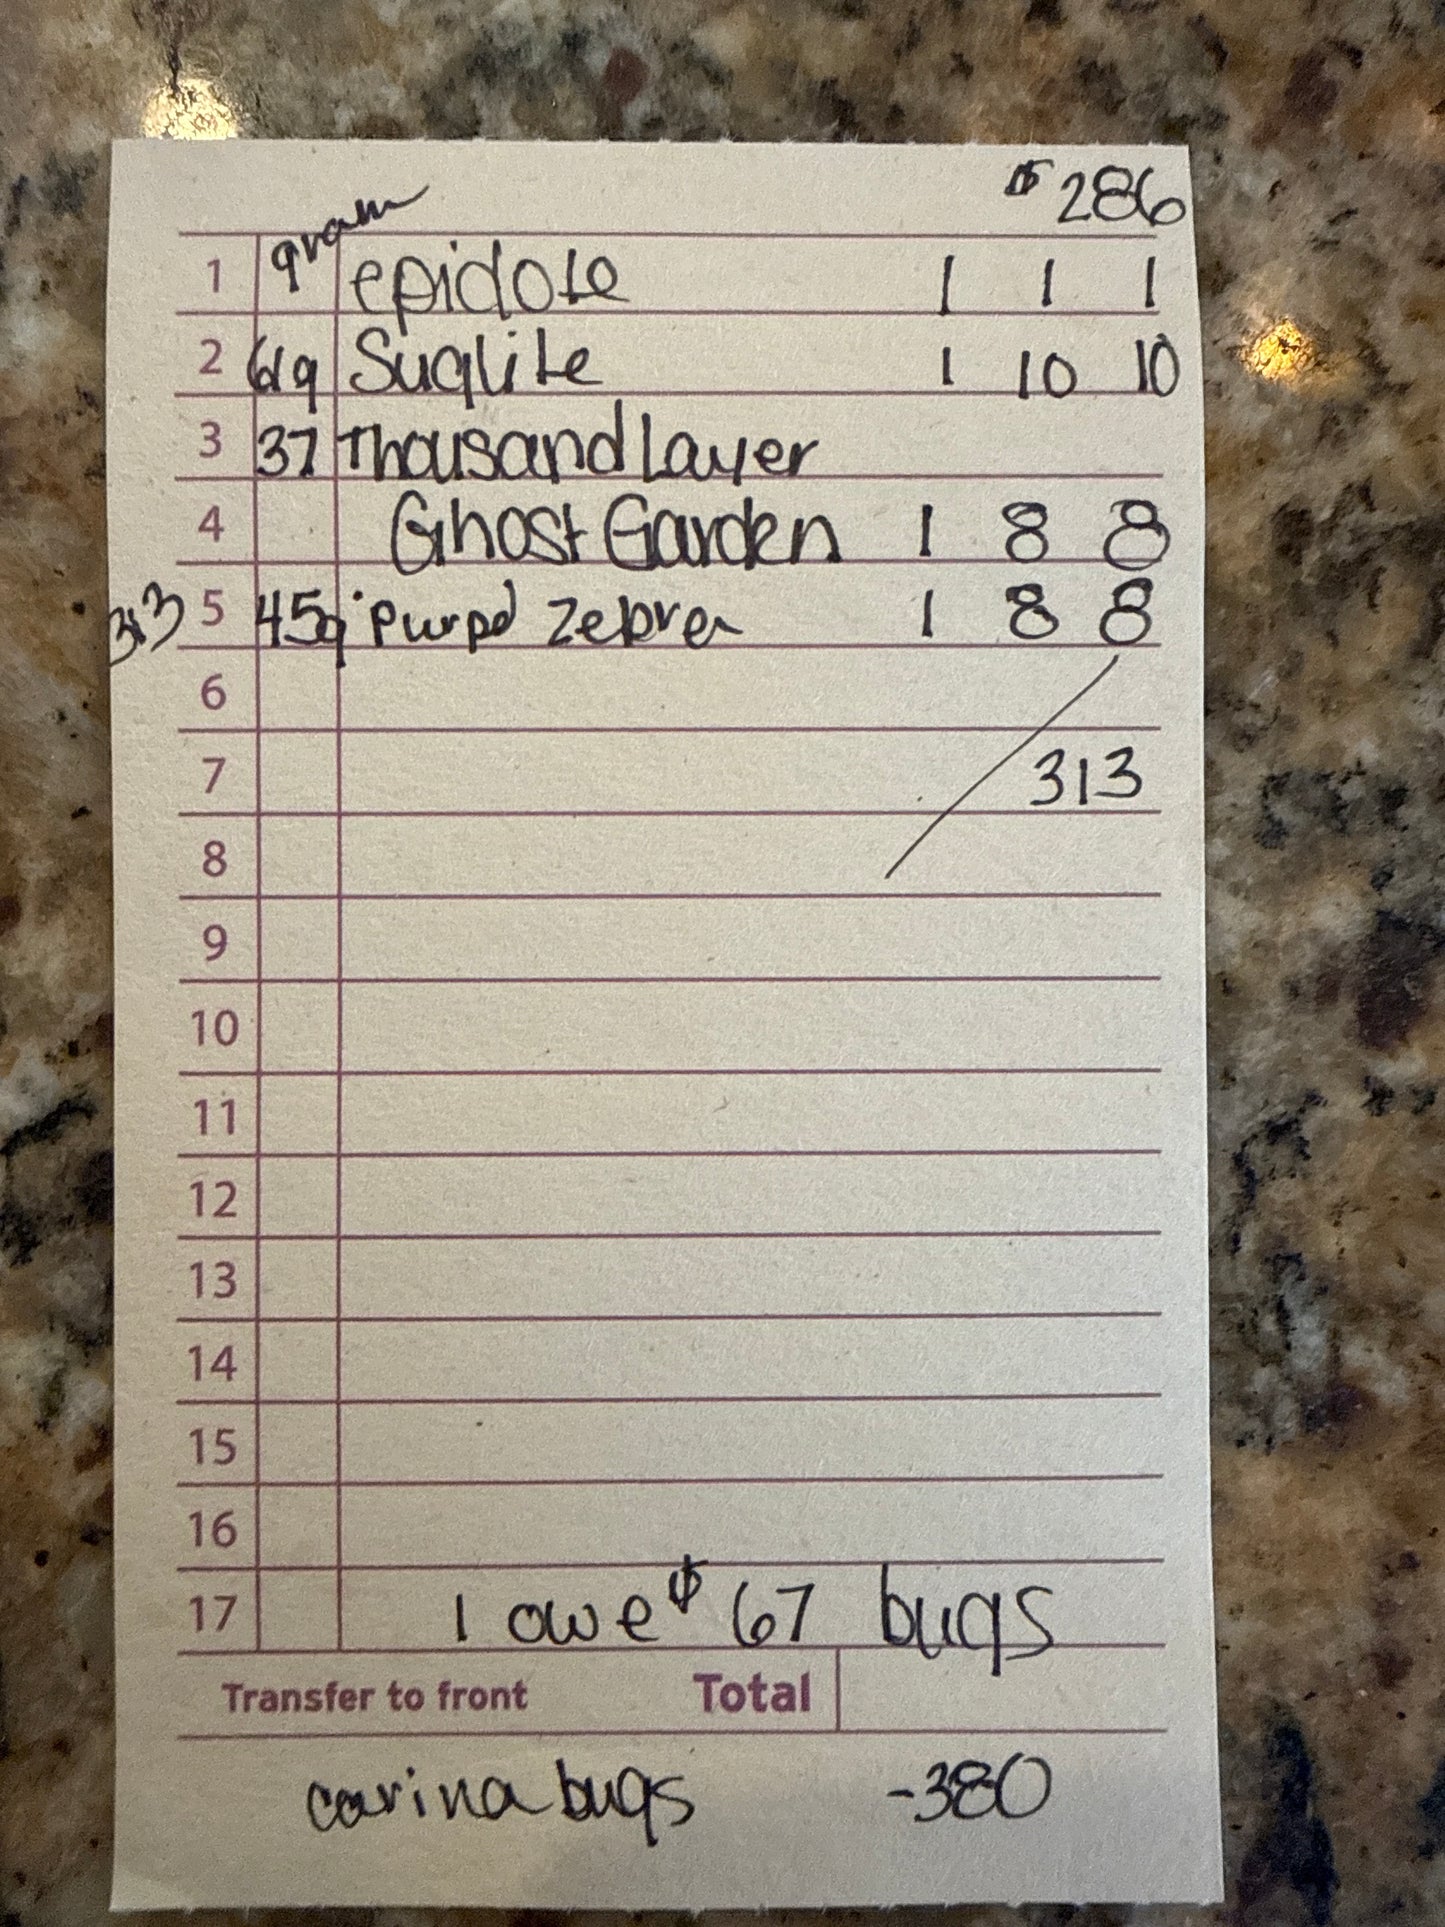 $ 286
gram
1 epidote 1 1 1
2 61g Suglite 1 10 10
3 37 Thousand Layer
4 Ghost Garden 1 8 8
313 5 45g purpd zebra 1 8 8
6
7 313
8
9
10
11
12
13
14
15
16
17 I owe $ 67 bugs
Transfer to front Total
carina bugs -380